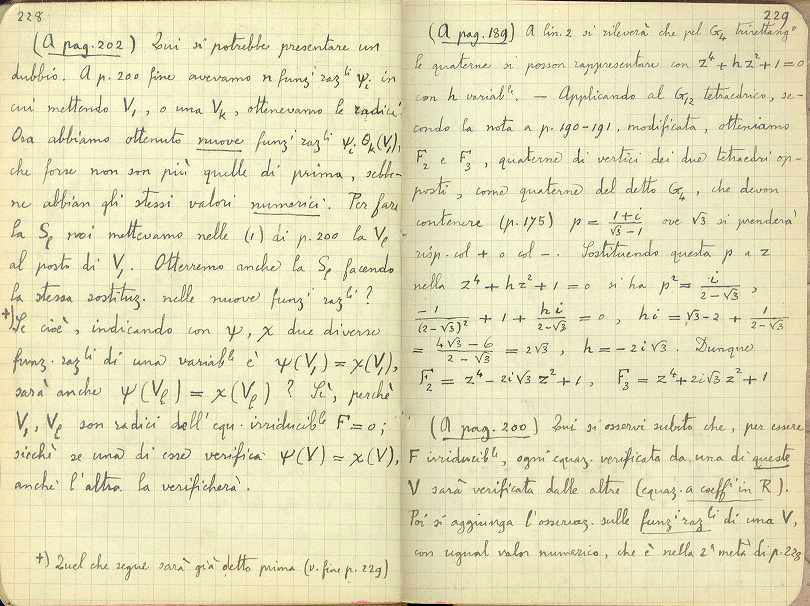 228
(A pag. 202) Qui si potrebbe presentare un
dubbio. A p. 200 fine avevamo n funz.i raz.li ψi in
cui mettendo V1, o una Vk, ottenevamo le radici.
Ora abbiamo ottenuto nuove funz.i raz.li ψi θk(V1),
che forse non son più quelle di prima, sebbe-
ne abbian gli stessi valori numerici. Per fare
la Sl noi mettevamo nelle (1) di p. 200 la Vl
al posto di V1. Otterremo anche la Sl facendo
la stessa sostituz. nelle nuove funz.i raz.li?
+) Se cioè, indicando con ψ, χ due diverse
funz. raz.li di una variab.le è ψ(V1) = χ(V1),
sarà anche ψ(Vl) = χ(Vl)? Sì, perchè
V1, Vl son radici dell'equ. irriducib.le F = 0;
sicchè se una di esse verifica ψ(V) = χ(V),
anche l'altra la verificherà.
+) Quel che segue sarà già detto prima (v. fine p. 229)
229
(A pag. 189) A lin. 2 si rileverà che pel G4 trirettang.o
le quaterne si posson rappresentare con z⁴ + hz² + 1 = 0
con h variab.le. — Applicando al G12 tetraedrico, se-
condo la nota a p. 190-191, modificata, otteniamo
F2 e F3, quaterne di vertici dei due tetraedri op-
posti, come quaterne del detto G4, che devon
contenere (p. 175) p = (1+i)/(√3 − 1) ove √3 si prenderà
risp. col + o col −. Sostituendo questa p a z
nella z⁴ + hz² + 1 = 0 si ha p² = i/(2 − √3),
−1/(2−√3)² + 1 + hi/(2−√3) = 0, hi = √3 − 2 + 1/(2 − √3)
= (4√3 − 6)/(2 − √3) = 2√3, h = −2i√3. Dunque
F2 = z⁴ − 2i√3 z² + 1, F3 = z⁴ + 2i√3 z² + 1
(A pag. 200) Qui si osservi subito che, per essere
F irriducib.le, ogni equaz. verificata da una di queste
V sarà verificata dalle altre (equaz. a coeff.i in R).
Poi si aggiunga l'osservaz. sulle funz.i raz.li di una V,
con ugual valor numerico, che è nella 2ª metà di p. 228